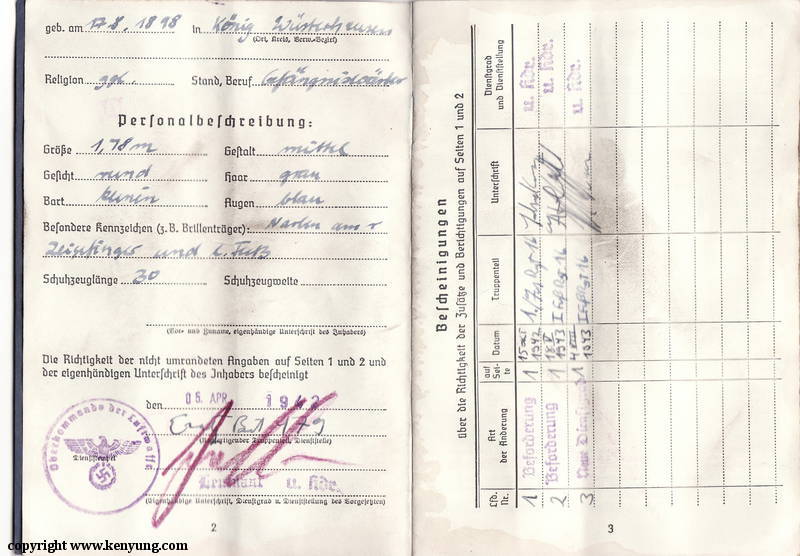 geb. am 17.8.1898 in König Wüsterhausen
(Ort, Kreis, Verw.-Bezirk)
Religion ggl. Stand, Beruf
Personalbeschreibung:
Größe 1,78 m Gestalt mittel
Gesicht rund Haar grau
Bart keinen Augen blau
Besondere Kennzeichen (z. B. Brillenträger): Narben am r
Zeigefinger und l. Fuß
Schuhzeuglänge 30 Schuhzeugweite
(Vor- und Zuname, eigenhändige Unterschrift des Inhabers)
Die Richtigkeit der nicht umrandeten Angaben auf Seiten 1 und 2 und
der eigenhändigen Unterschrift des Inhabers bescheinigt
den 05. APR. 1942
(Ausfertigender Truppenteil, Dienststelle)
Oberkommando der Luftwaffe
Dienststempel
Leutnant u. Kdr.
(Eigenhändige Unterschrift, Dienstgrad u. Dienststellung des Vorgesetzten)
2
Bescheinigungen
über die Richtigkeit der Zusätze und Berichtigungen auf Seiten 1 und 2
Lfd. Nr. Art der Änderung auf Seite Datum Truppenteil Unterschrift Dienstgrad und Dienststellung
1 Beförderung 1 1942 u. Kdr.
2 Beförderung 1 1943 u. Kdr.
3 1 1943 u. Kdr.
3
copyright www.kenyung.com